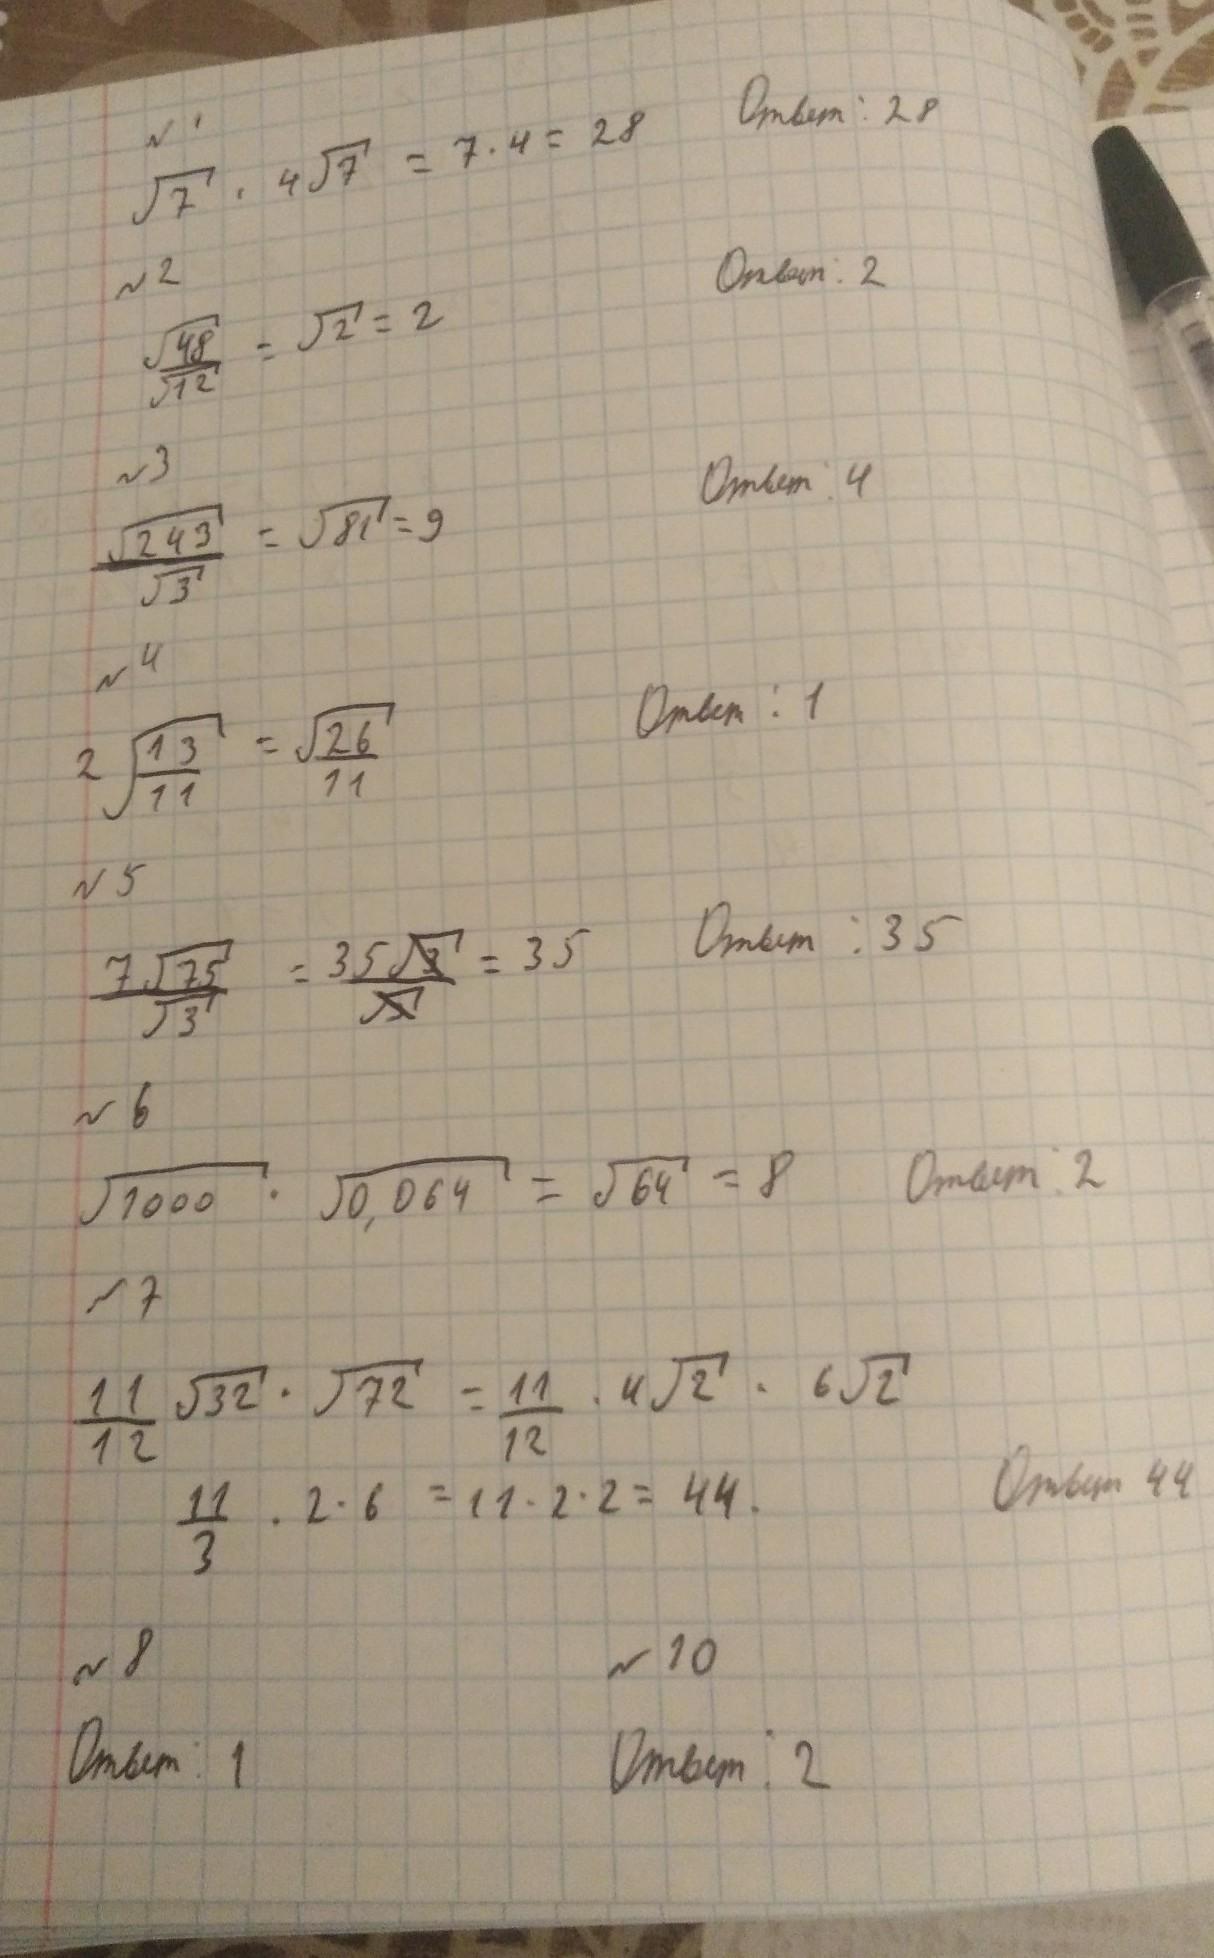 №1
√7 · 4√7 = 7·4 = 28 Ответ: 28
№2
√48/√12 = √2 = 2 Ответ: 2
№3
√243/√3 = √81 = 9 Ответ: 4
№4
2√(13/11) = √26/11 Ответ: 1
№5
7√75/√3 = 35√3/√3 = 35 Ответ: 35
№6
√1000 · √0,064 = √64 = 8 Ответ: 2
№7
11/12 √32 · √72 = 11/12 · 4√2 · 6√2
11/3 · 2·6 = 11·2·2 = 44. Ответ 44
№8 №10
Ответ: 1 Ответ: 2